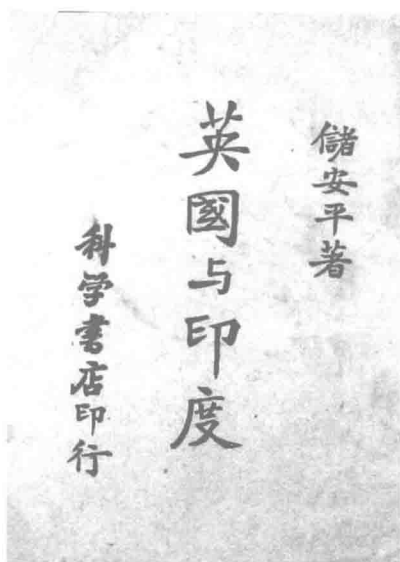 儲安平著
英國与印度
科学書店印行